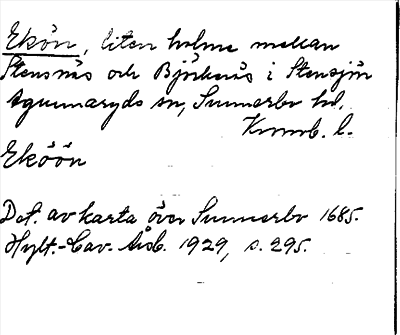 Ekön, liten holme mellan
Stensnäs och Björknäs i Stensjön
Agunnaryds sn, Sunnerbo hd,
Kronob. l.
Eköön
Det. av karta över Sunnerbo 1685.
Hylt.-Cav. Årsb. 1929, s. 295.